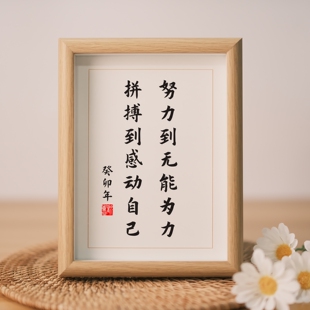 努力到无能为力
拼搏到感动自己
癸卯年